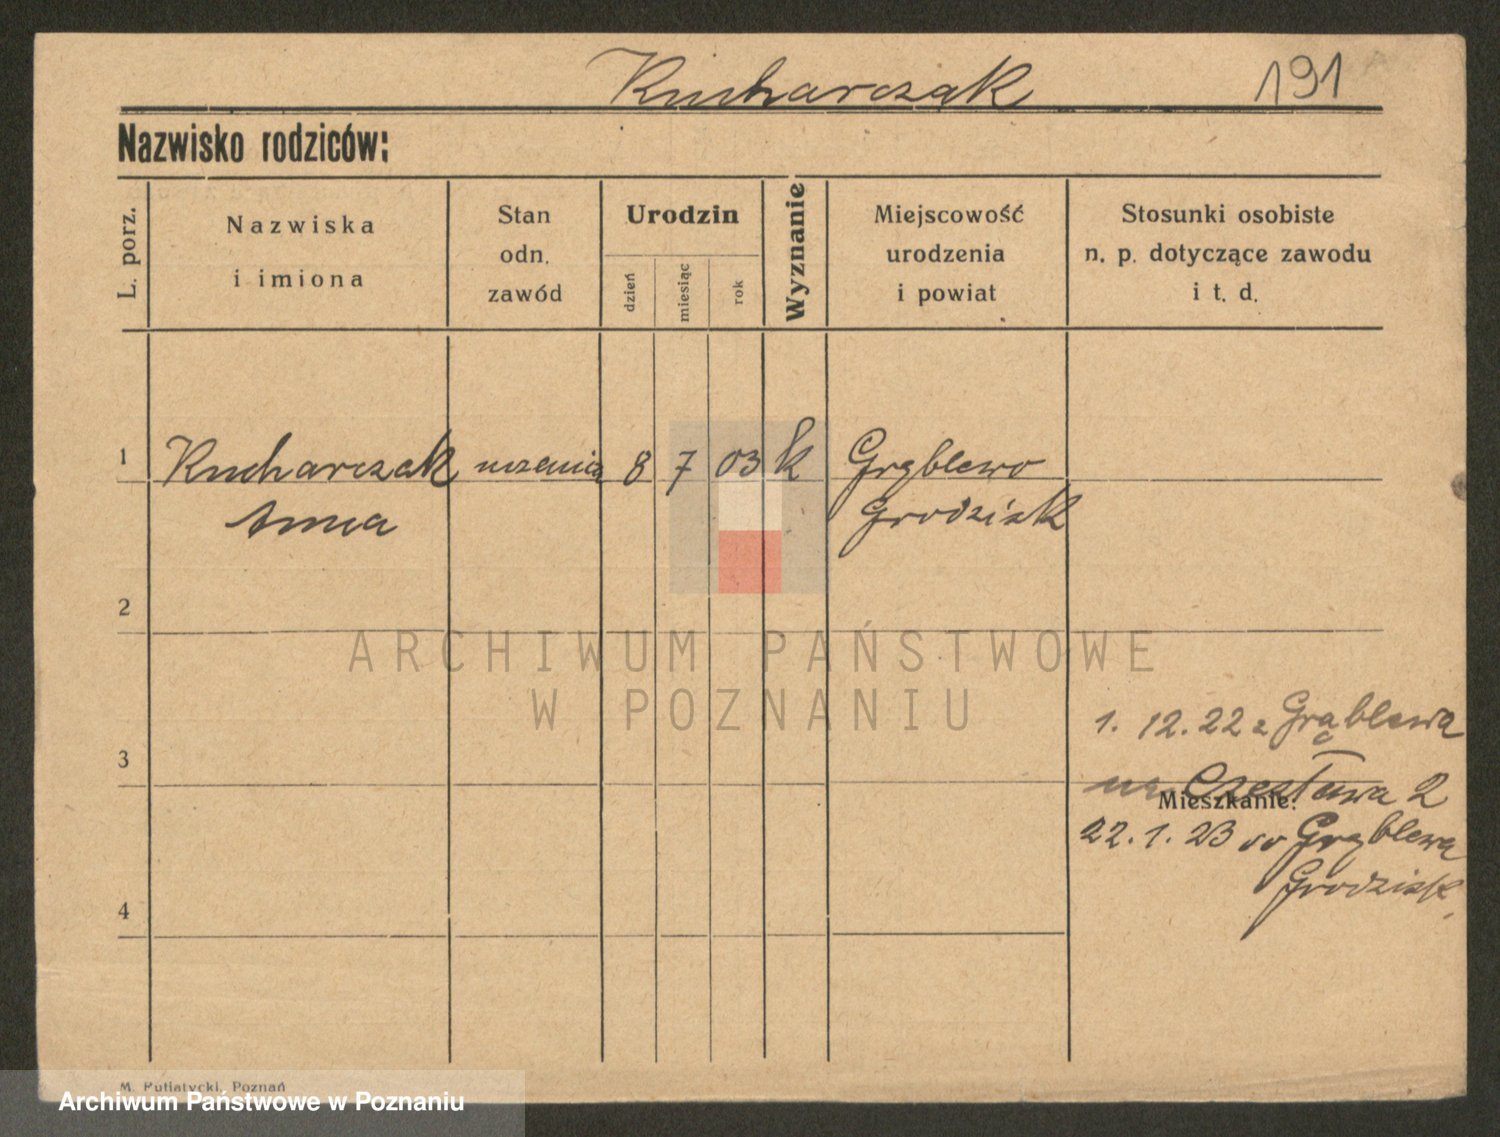 Kucharczak 191
Nazwisko rodziców:
L. porz.
Nazwiska
i imiona
Stan
odn.
zawód
Urodzin
dzień
miesiąc
rok
Wyznanie
Miejscowość
urodzenia
i powiat
Stosunki osobiste
n. p. dotyczące zawodu
i t. d.
1 Kucharczak uczenica 8 7 03 k Grąblewo
Anna Grodzisk
2
ARCHIWUM PAŃSTWOWE
W POZNANIU
1. 12. 22 z Grąblewa
3
Czesława 2
Mieszkanie:
22. 1. 23 do Grąblewa
Grodzisk.
4
M. Putiatycki, Poznań
Archiwum Państwowe w Poznaniu